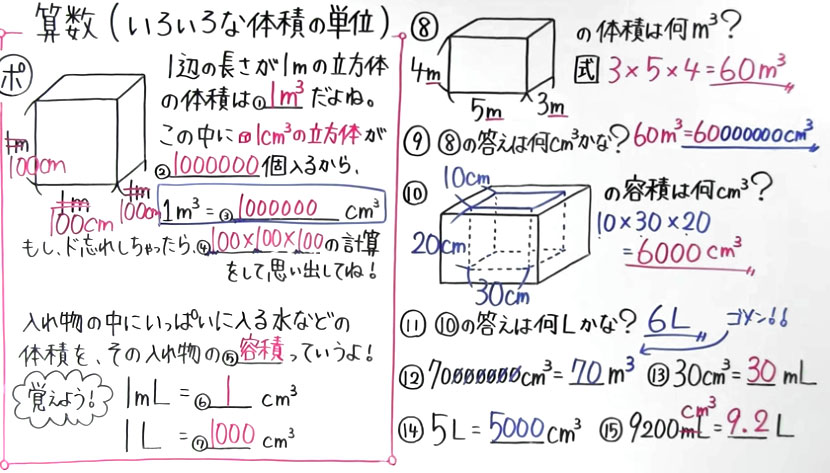 算数(いろいろな体積の単位)
ポ
1辺の長さが1mの立方体
の体積は①1m³だよね。
この中に1cm³の立方体が
②1000000個入るから、
1m³=③1000000 cm³
1m
100cm
1m
100cm
1m
100cm
もし、ド忘れしちゃったら、④100×100×100の計算
をして、思い出してね!
入れ物の中にいっぱいに入る水などの
体積を、その入れ物の⑤容積っていうよ!
覚えよう!
1mL=⑥1 cm³
1L=⑦1000 cm³
⑧
4m
5m
3m
の体積は何m³?
式 3×5×4=60m³
⑨ ⑧の答えは何cm³かな? 60m³=60000000cm³
⑩
10cm
20cm
30cm
の容積は何cm³?
10×30×20
=6000cm³
⑪ ⑩の答えは何Lかな? 6L ゴメン!!
⑫70000000cm³=70m³ ⑬30cm³=30mL
⑭5L=5000cm³ ⑮9200mL cm³=9.2L